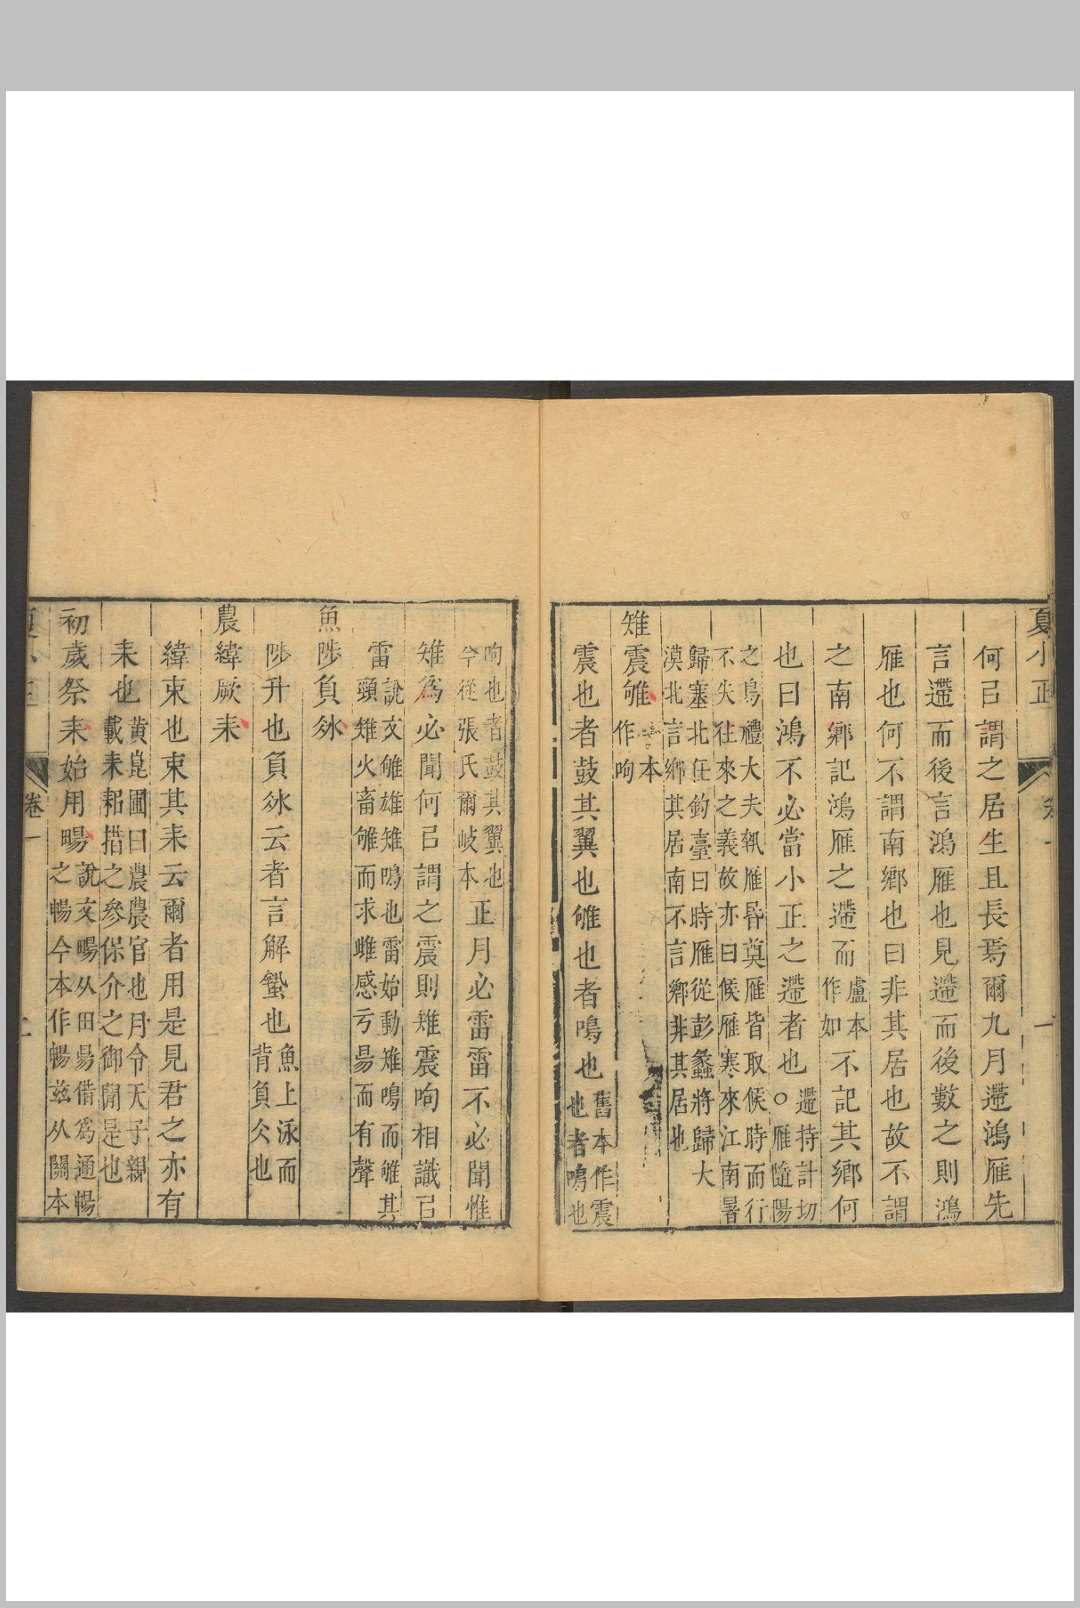 夏小正
何㠯謂之居生且長焉爾九月遰鴻雁先
言遰而後言鴻雁也見遰而後數之則鴻
雁也何不謂南鄉也曰非其居也故不謂
之南鄉記鴻雁之遰而
盧本
作如
不記其鄉何
也曰鴻不必當小正之遰者也
遰持計切
○雁隨陽
之鳥禮大夫執雁昏奠雁皆取候時而行
不失往來之義故亦曰候雁寒來江南暑
歸塞北任鈞臺曰時雁從彭蠡將歸大
漠北言鄉其居南不言鄉非其居也
雉震雊
本
作呴
震也者鼓其翼也雊也者鳴也
舊本作震
也者鳴也
呴也者鼓其翼也
今從張氏爾岐本
正月必雷雷不必聞惟
雉爲必聞何㠯謂之震則雉震呴相識㠯
雷
說文雊雄雉鳴也雷始動雉鳴而雊其
頸雉火畜雊而求雌感亏昜而有聲
魚陟負冰
陟升也負冰云者言解蟄也
魚上泳而
背負仌也
農緯厥耒
緯束也束其耒云爾者用是見君之亦有
耒也
黃崑圃曰農農官也月令天子親
載耒耜措之參保介之御閒是也
初歲祭耒始用暢
說文畼从田昜借爲通暢
之暢今本作暢茲从關本
卷一